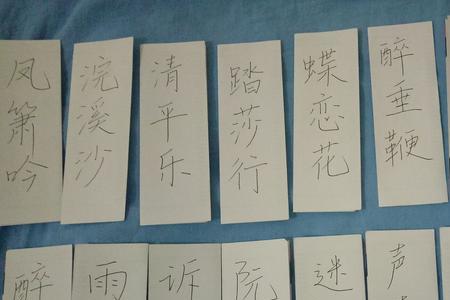 凤箫吟
浣溪沙
清平乐
踏莎行
蝶恋花
醉垂鞭
醉
雨
诉
阮
迷
声